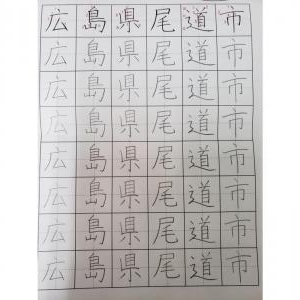 広島県尾道市
広島県尾道市
広島県尾道市
広島県尾道市
広島県尾道市
広島県尾道市
広島県尾道市
広島県尾道市